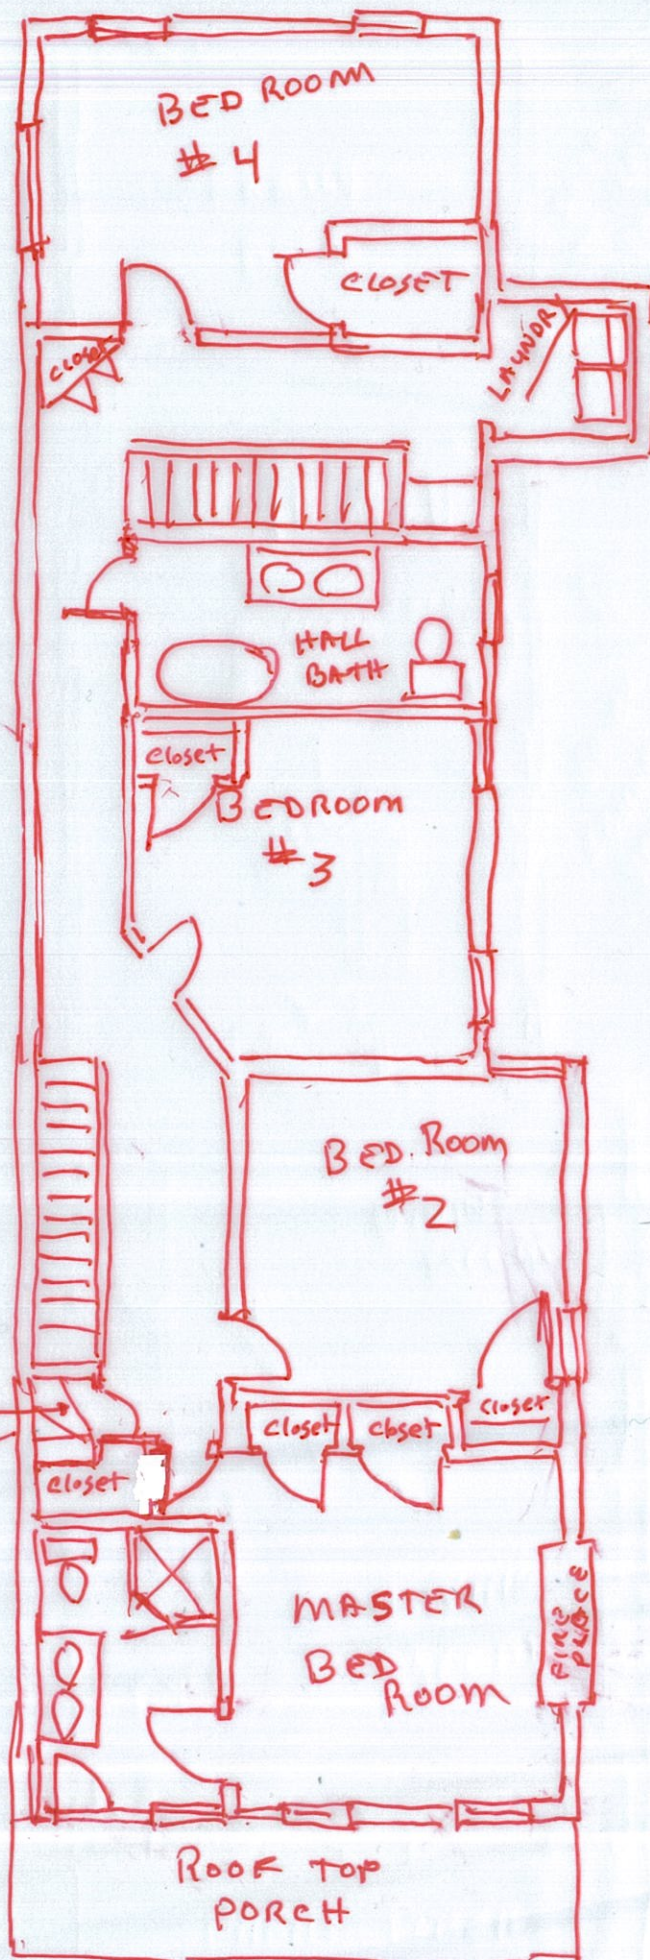 BED ROOM
# 4
CLOSET
CLOSET
LAUNDRY
HALL
BATH
closet
BEDROOM
# 3
BED. ROOM
# 2
closet
closet
closet
closet
MASTER
BED
ROOM
FIRE
PLACE
ROOF TOP
PORCH